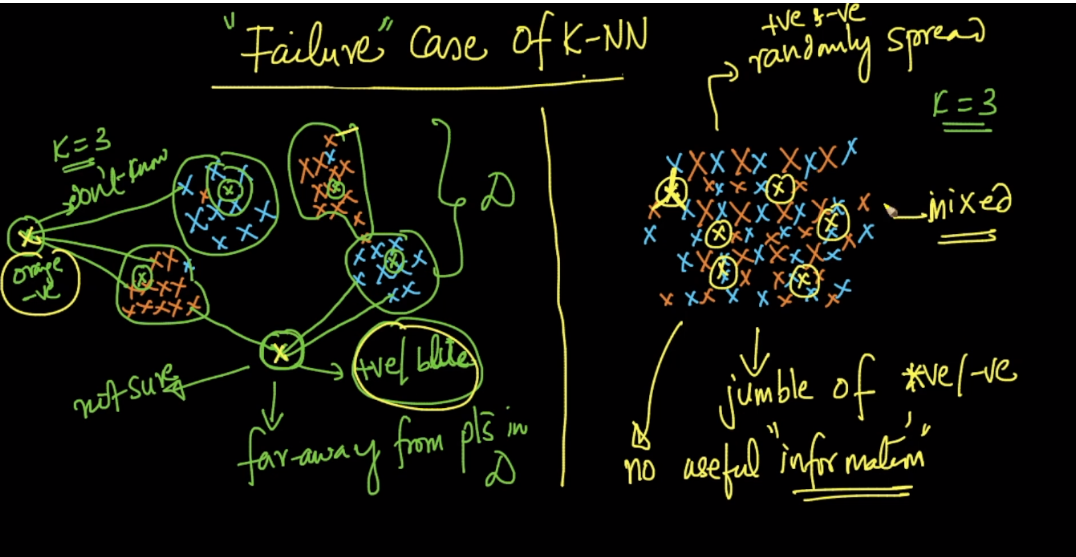 "Failure" Case of K-NN
K=3
don't know
orange
-ve
D
not sure
+ve/ blue
far-away from pts in
D
+ve & -ve
randomly spread
K=3
mixed
jumble of +ve/-ve
no useful "information"